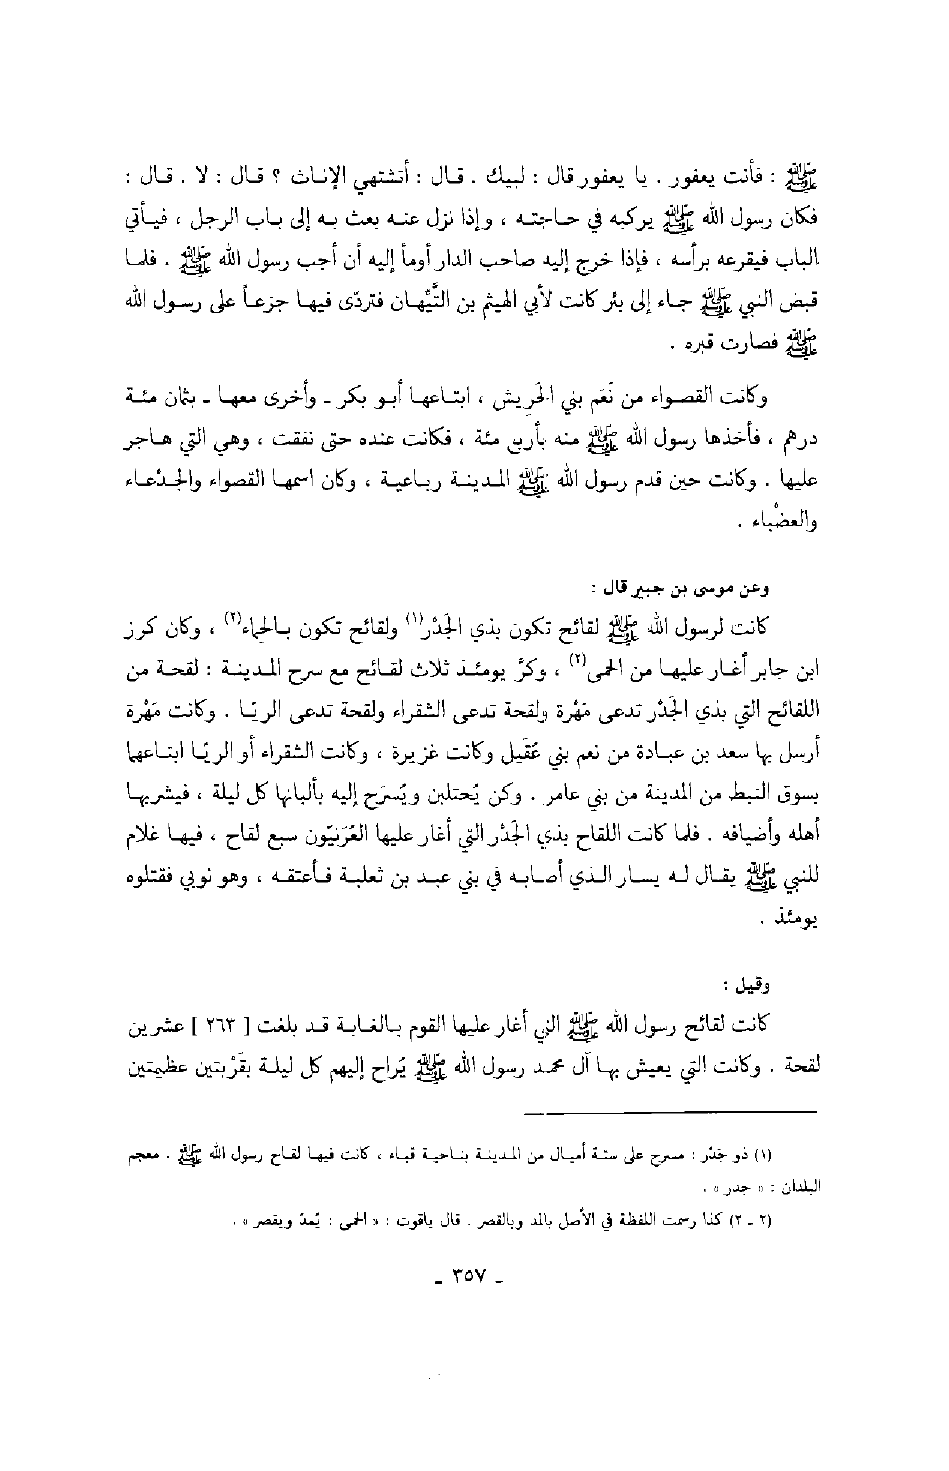 ﷺ : فأنت يعفور . يا يعفور قال : لبيك . قال : أتشتهي الإناث ؟ قال : لا . قال :
فكان رسول الله ﷺ يركبه في حاجته ، وإذا نزل عنه بعث به إلى باب الرجل ، فيأتي
الباب فيقرعه برأسه ، فإذا خرج إليه صاحب الدار أومأ إليه أن أجب رسول الله ﷺ . فلما
قبض النبي ﷺ جاء إلى بئر كانت لأبي الهيثم بن التَّيِّهان فتردّى فيها جزعاً على رسول الله
ﷺ فصارت قبره .
وكانت القصواء من نَعَم بني الحَرِيش ، ابتاعها أبو بكر - وأخرى معها - بثمان مئة
درهم ، فأخذها رسول الله ﷺ منه بأربع مئة ، فكانت عنده حتى نفقت ، وهي التي هاجر
عليها . وكانت حين قدم رسول الله ﷺ المدينة رباعية ، وكان اسمها القصواء والجدْعاء
والعضْباء .
وعن موسى بن جبير قال :
كانت لرسول الله ﷺ لقائح تكون بذي الجَدْر(١) ولقائح تكون بالحِماء(٢) ، وكان كرز
ابن جابر أغار عليها من الحمى(٢) ، وكرَّ يومئذ ثلاث لقائح مع سرح المدينة : لقحة من
اللقائح التي بذي الجَدْر تدعى مَهْرة ولقحة تدعى الشقراء ولقحة تدعى الريّا . وكانت مَهْرة
أرسل بها سعد بن عبادة من نعم بني عُقَيل وكانت غزيرة ، وكانت الشقراء أو الريّا ابتاعها
بسوق النبط من المدينة من بني عامر . وكن يُحتلبن ويُسرَح إليه بألبانها كل ليلة ، فيشربها
أهله وأضيافه . فلما كانت اللقاح بذي الجَدْر التي أغار عليها العُرَنيّون سبع لقاح ، فيها غلام
للنبي ﷺ يقال له يسار الذي أصابه في بني عبد بن ثعلبة فأعتقه ، وهو نوبي فقتلوه
يومئذ .
وقيل :
كانت لقائح رسول الله ﷺ التي أغار عليها القوم بالغابة قد بلغت [ ٢٦٣ ] عشرين
لقحة . وكانت التي يعيش بها آل محمد رسول الله ﷺ يُراح إليهم كل ليلة بقِرْبتين عظيمتين
(١) ذو جَدْر : مسرح على ستة أميال من المدينة بناحية قباء ، كانت فيها لقاح رسول الله ﷺ . معجم
البلدان : « جدر » .
(٢ - ٢) كذا رسمت اللفظة في الأصل بالمد وبالقصر . قال ياقوت : « الحمى : يُمدّ ويقصر » .
- ٣٥٧ -